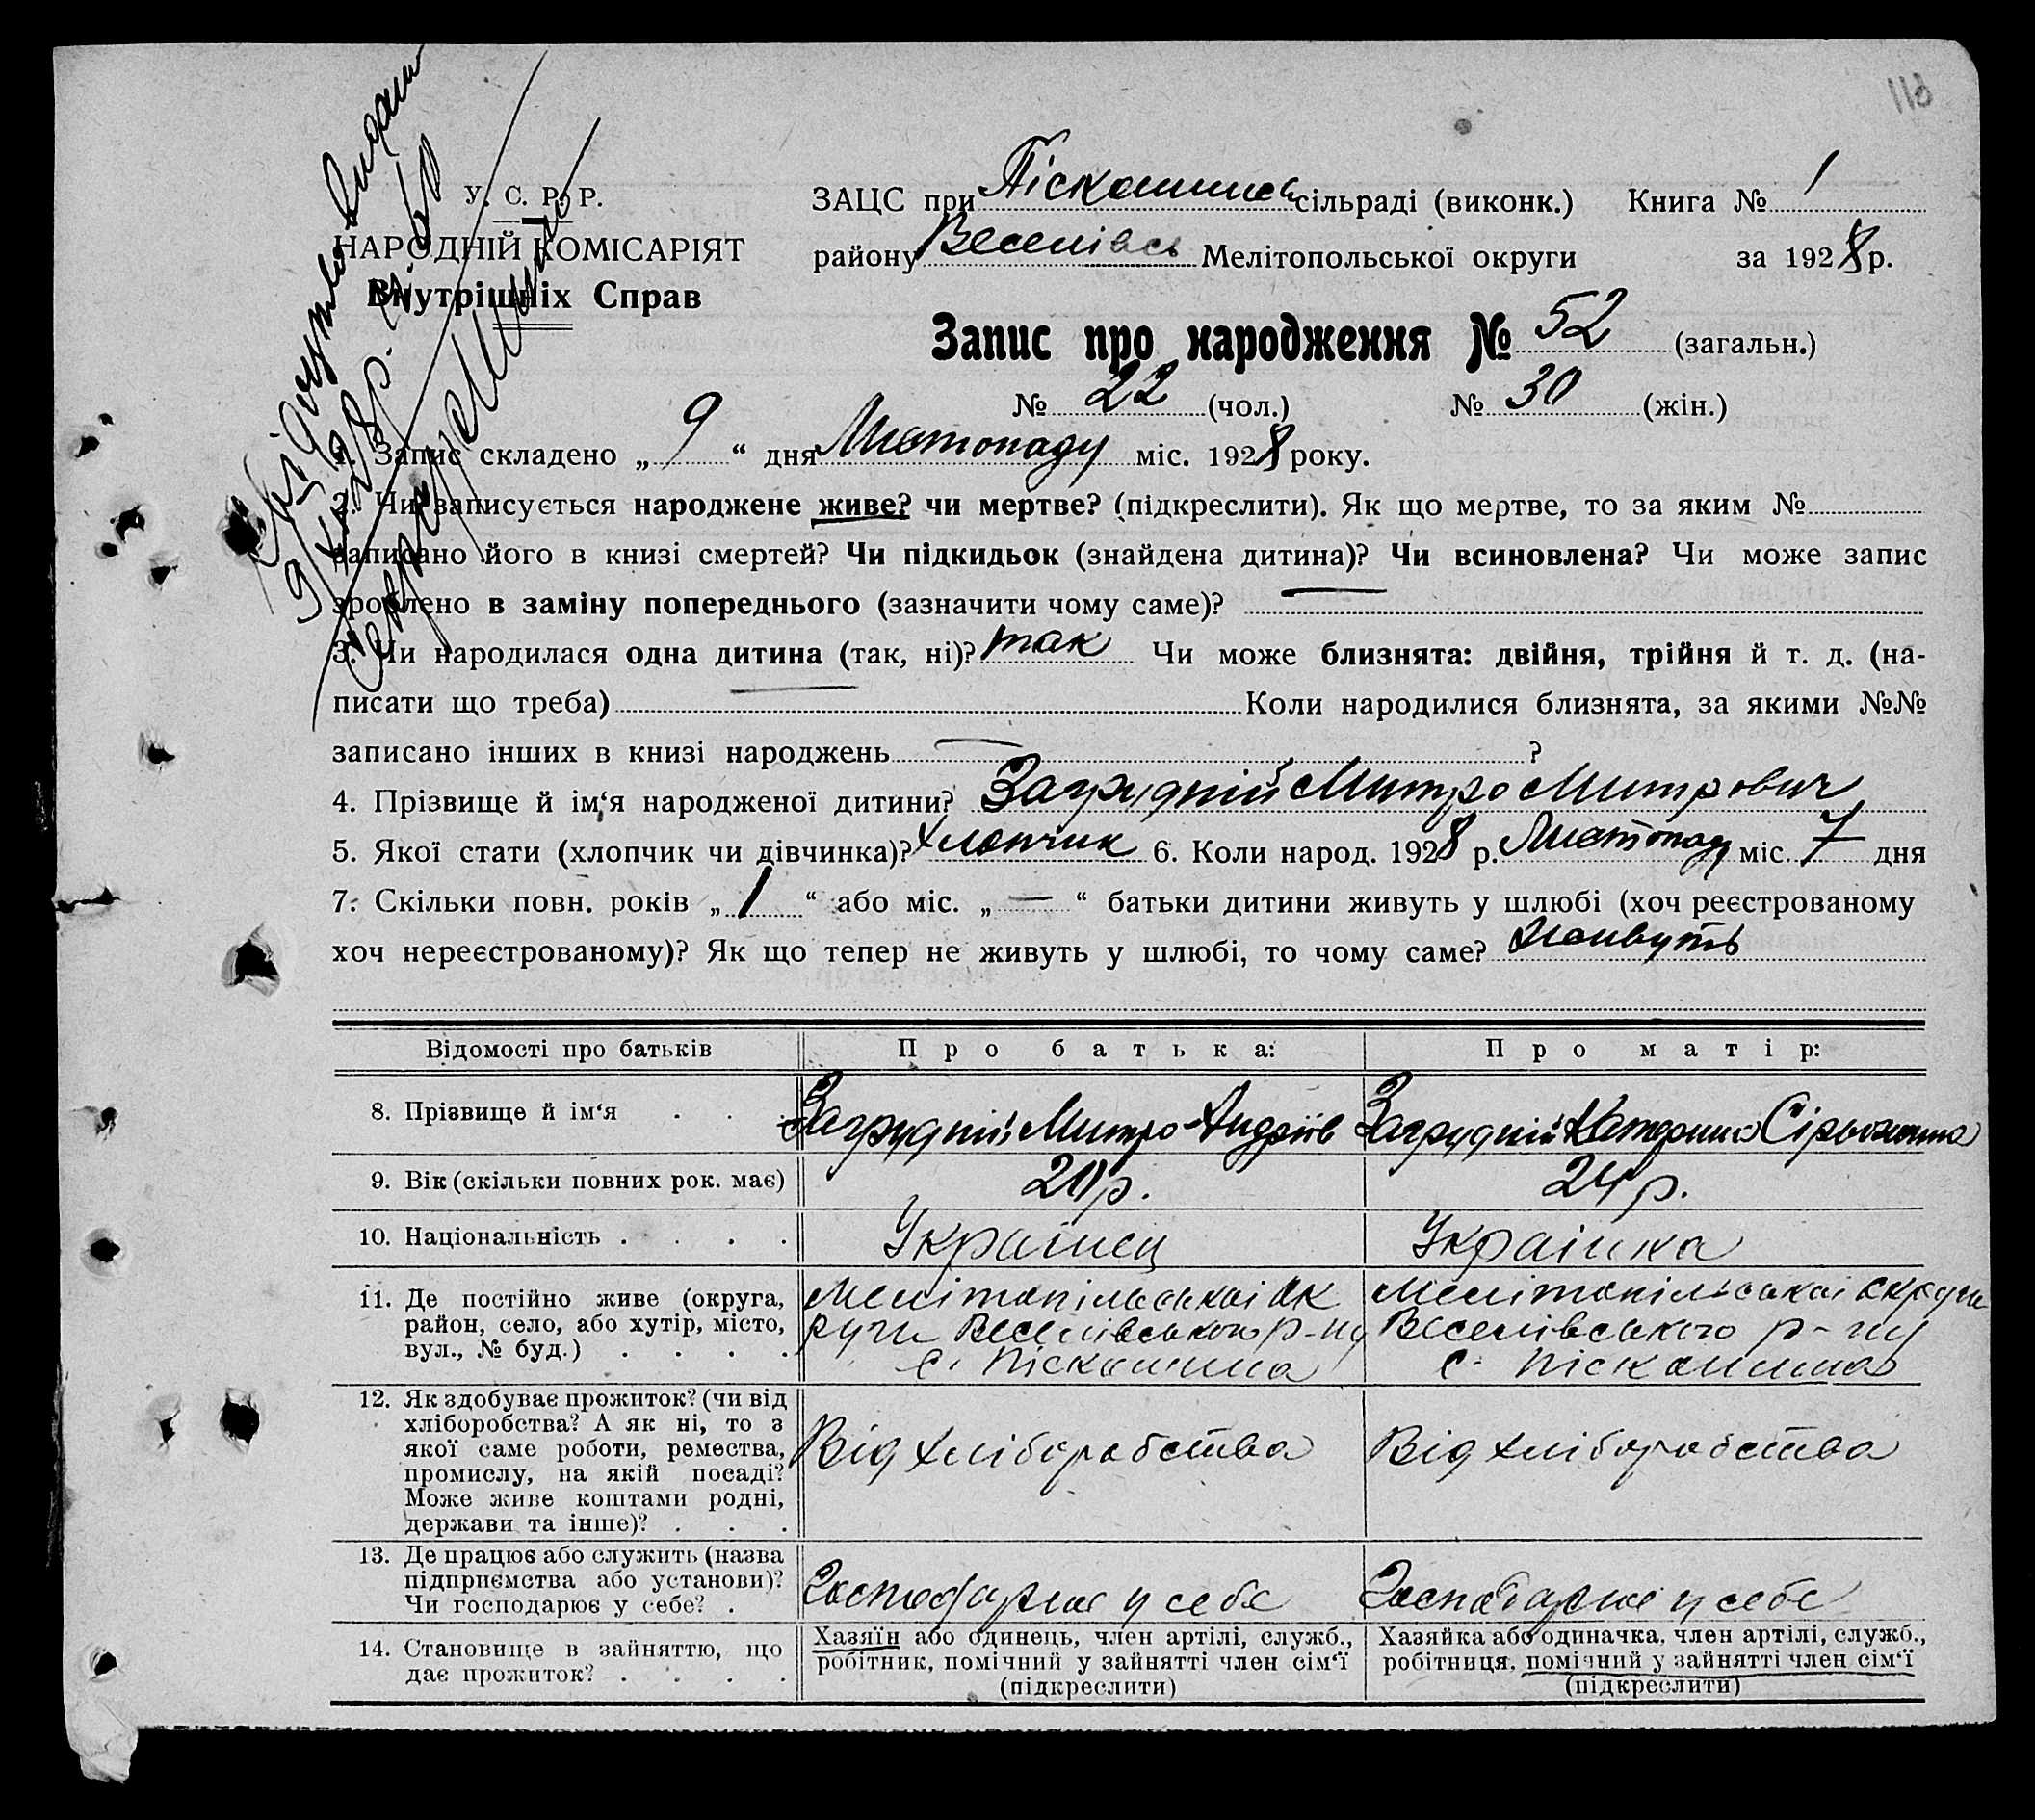 110
У. С. Р. Р.
НАРОДНІЙ КОМІСАРІЯТ
Внутрішніх Справ
ЗАЦС при Піскошинськ сільраді (виконк.) Книга № 1
району Веселівсь Мелітопольської округи за 1928 р.
Запис про народження № 52 (загальн.)
№ 22 (чол.) № 30 (жін.)
1. Запис складено „ 9 “ дня Листопаду міс. 1928 року.
2. Чи записується народжене живе? чи мертве? (підкреслити). Як що мертве, то за яким №
записано його в книзі смертей? Чи підкидьок (знайдена дитина)? Чи всиновлена? Чи може запис
зроблено в заміну попереднього (зазначити чому саме)? —
3. Чи народилася одна дитина (так, ні)? так Чи може близнята: двійня, трійня й т. д. (на-
писати що треба) — Коли народилися близнята, за якими №№
записано інших в книзі народжень — ?
4. Прізвище й ім‘я народженої дитини? Загрудній Митро Митрович
5. Якої стати (хлопчик чи дівчинка)? хлопчик 6. Коли народ. 1928 р. Листопаду міс. 7 дня
7. Скільки повн. років „ 1 “ або міс. „ — “ батьки дитини живуть у шлюбі (хоч реєстрованому
хоч нереєстрованому)? Як що тепер не живуть у шлюбі, то чому саме? Живуть
Відомості про батьків Про батька: Про матір:
8. Прізвище й ім‘я . . . Загрудній Митро Андріїв Загрудній Катерина
9. Вік (скільки повних рок. має) 20 р. 24 р.
10. Національність . . . . Українец Українка
11. Де постійно живе (округа, район, село, або хутір, місто, вул., № буд.) . . . .
Мелітопільської ок
руги Веселівського р-ну
с. Піскошина
Мелітопільської округи
Веселівського р-ну
с. Піскошина
12. Як здобуває прожиток? (чи від хліборобства? А як ні, то з якої саме роботи, ремества, промислу, на якій посаді? Може живе коштами родні, держави та інше)? . . .
Від хліборобства Від хліборобства
13. Де працює або служить (назва підприємства або установи)? Чи господарює у себе? .
Господарює у себе Господарює у себе
14. Становище в зайняттю, що дає прожиток? . . . .
Хазяїн або одинець, член артілі, служб.,
робітник, помічний у зайнятті член сім‘ї
(підкреслити)
Хазяйка або одиначка, член артілі, служб.,
робітниця, помічний у зайнятті член сім‘ї
(підкреслити)